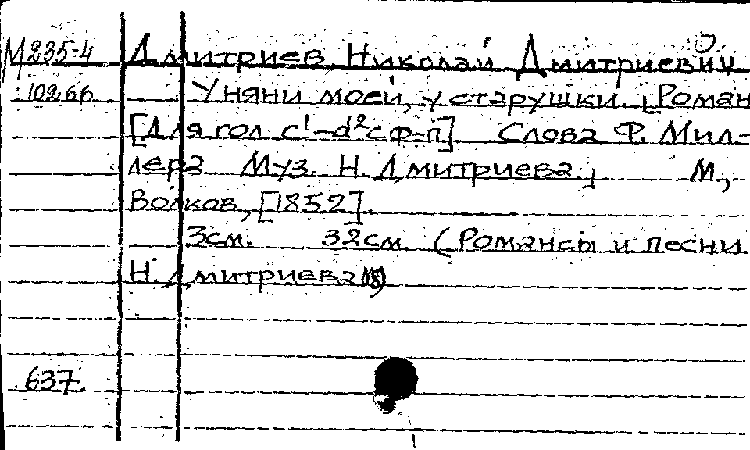 М235-4 Дмитриев, Николай Дмитриевич
102 66 У няни моей, у старушки. [Роман
[Для гол. c¹-d² с ф-п]. Слова Ф. Мил-
лера Муз. Н. Дмитриева, М,
Волков, [1852].
3 см. 32 см. (Романсы и песни
Н. Дмитриева
637.